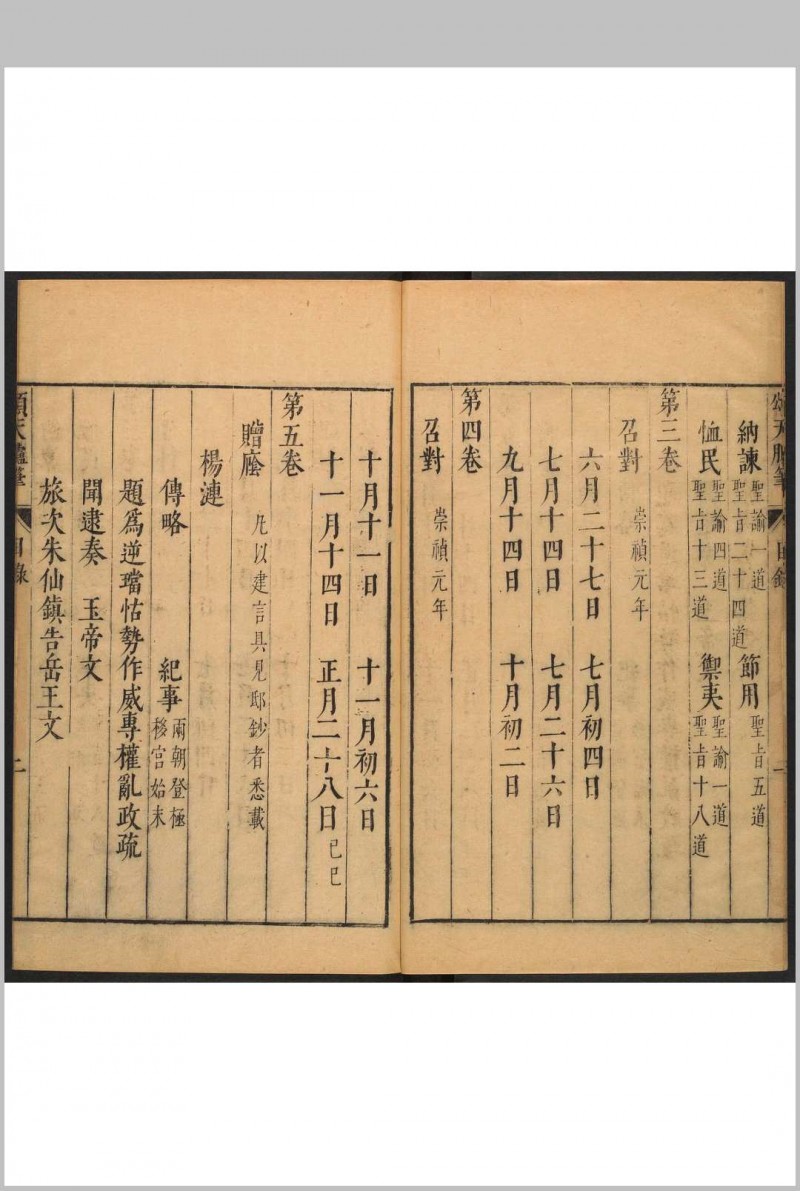 納諫 聖諭一道 聖旨二十四道 節用 聖旨五道
恤民 聖諭四道 聖旨十三道 禦夷 聖諭一道 聖旨十八道
第三卷
召對 崇禎元年
六月二十七日 七月初四日
七月十四日 七月二十六日
九月十四日 十月初二日
第四卷
召對 崇禎元年
十月十一日 十一月初六日
十一月十四日 正月二十八日 己巳
第五卷
贈廕 凡以建言具見邸鈔者悉載
楊漣
傳略 紀事 兩朝登極 移宮始末
題爲逆璫怙勢作威專權亂政疏
聞逮奏 玉帝文
旅次朱仙鎮告岳王文
頌天臚筆 目錄 二